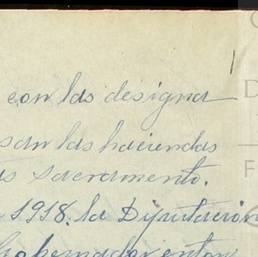 con las designa
san las haciendas
s sacramento.
1918. la Diputación